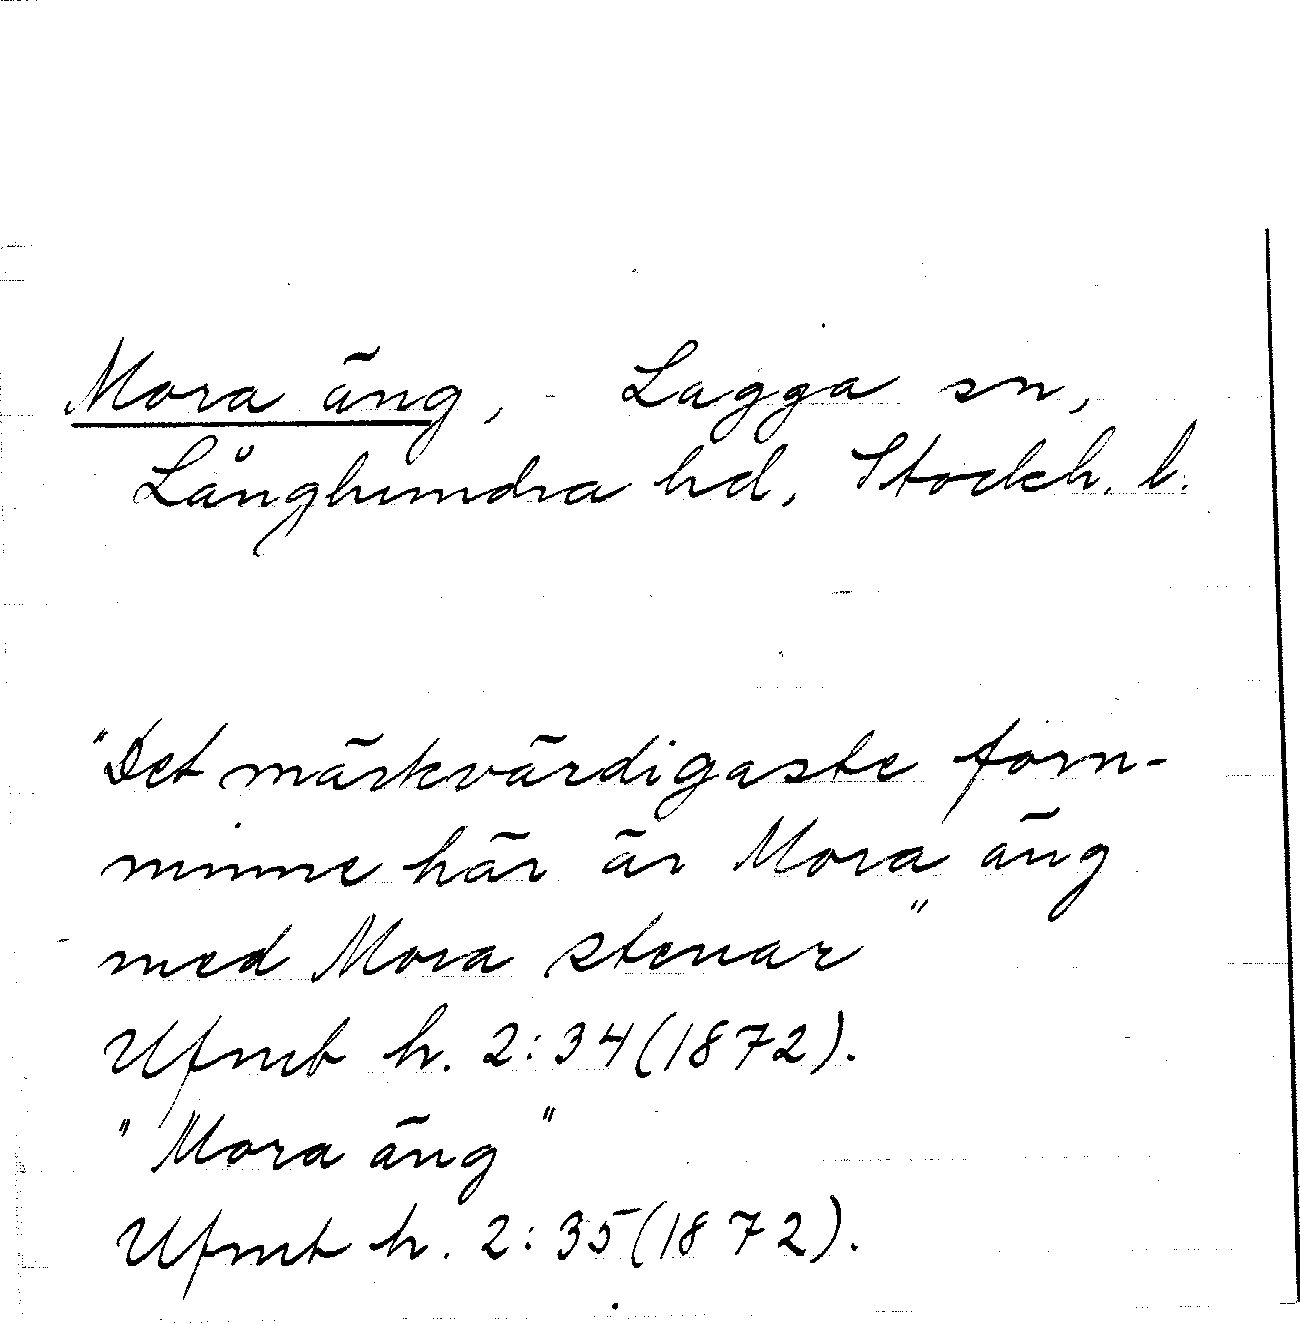 Mora äng, Lagga sn,
Långhundra hd, Stockh. l.
"Det märkvärdigaste forn-
minne här är Mora äng
med Mora stenar"
Ufmt h. 2:34 (1872).
"Mora äng"
Ufmt h. 2:35 (1872).